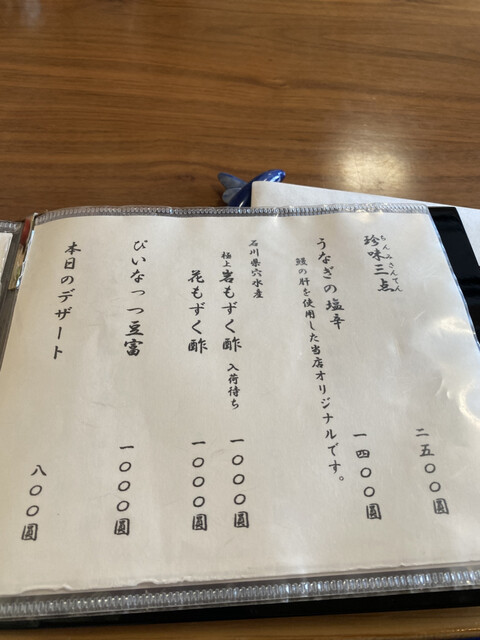 ちんみさんてん
珍味三点 二五〇〇圓
うなぎの塩辛 一四〇〇圓
鰻の肝を使用した当店オリジナルです。
石川県穴水産
極上 岩もずく酢 入荷待ち 一〇〇〇圓
花もずく酢 一〇〇〇圓
ぴいなっつ豆富 一〇〇〇圓
本日のデザート 八〇〇圓